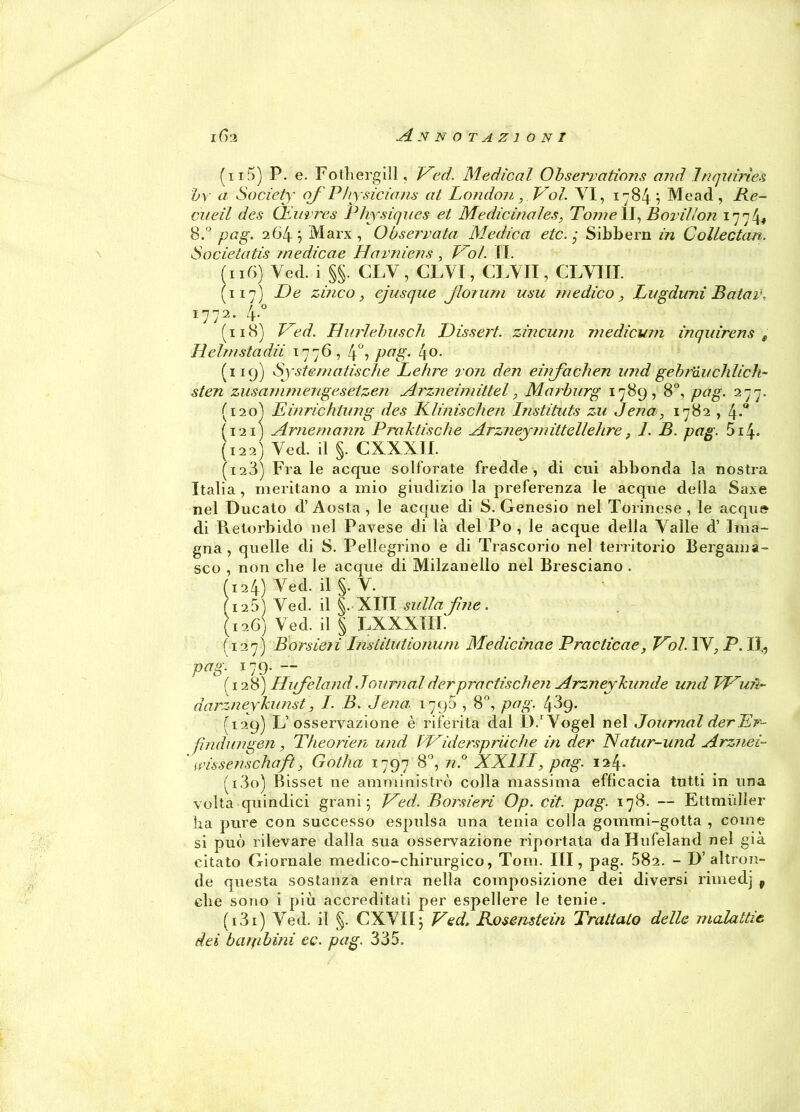 162 ANNOTAZIONI
(115) P. e. Fothergill, Ved. Medical Observations and Inquiries
by a Society of Physicians at London, Vol. VI, 1784; Mead, Re-
cueil des Œuvres Physiques et Medicinales, Tome II, Bovillon 1774,
8.° pag. 264; Marx, Observata Medica etc.; Sibbern in Collectan.
Societatis medicae Havniens, Vol. II.
(116) Ved. i §§. CLV, CLVI, CLVII, CLVIII.
(117) De zinco, ejusque florum usu medico, Lugduni Batav.
1772. 4.°
(118) Ved. Hurlebusch Dissert. zincum medicum inquirens,
Helmstadii 1776, 4°, pag. 40.
(119) Systematische Lehre von den einfachen und gebräuchlich-
sten zusammengesetzen Arzneimittel, Marburg 1789, 8°, pag. 277.
(120) Einrichtung des Klinischen Instituts zu Jena, 1782, 4.°
(121) Arnemann Praktische Arzneymittellehre, I. B. pag. 514.
(122) Ved. il §. CXXXII.
(123) Fra le acque solforate fredde, di cui abbonda la nostra
Italia, meritano a mio giudizio la preferenza le acque della Saxe
nel Ducato d'Aosta, le acque di S. Genesio nel Torinese, le acque
di Retorbido nel Pavese di là del Po, le acque della Valle d' Ima-
gna, quelle di S. Pellegrino e di Trascorio nel territorio Bergama-
sco, non che le acque di Milzanello nel Bresciano.
(124) Ved. il §. V.
(125) Ved. il §. XIII sulla fine.
(126) Ved. il § LXXXIII.
(127) Borsieri Institutionum Medicinae Practicae, Vol. IV, P. II,
pag. 179. —
(128) Hufeland Journal der practischen Arzneykunde und Wun-
darzneykunst, I. B. Jena 1795, 8°, pag. 439.
(129) L'osservazione è riferita dal D.r Vogel nel Journal der Er-
findungen, Theorien und Widersprüche in der Natur-und Arznei-
wissenschaft, Gotha 1797 8°, n.° XXIII, pag. 124.
(130) Bisset ne amministrò colla massima efficacia tutti in una
volta quindici grani; Ved. Borsieri Op. cit. pag. 178. — Ettmüller
ha pure con successo espulsa una tenia colla gommi-gotta, come
si può rilevare dalla sua osservazione riportata da Hufeland nel già
citato Giornale medico-chirurgico, Tom. III, pag. 582. - D'altron-
de questa sostanza entra nella composizione dei diversi rimedj,
che sono i più accreditati per espellere le tenie.
(131) Ved. il §. CXVII; Ved. Rosenstein Trattato delle malattie
dei bambini ec. pag. 335.